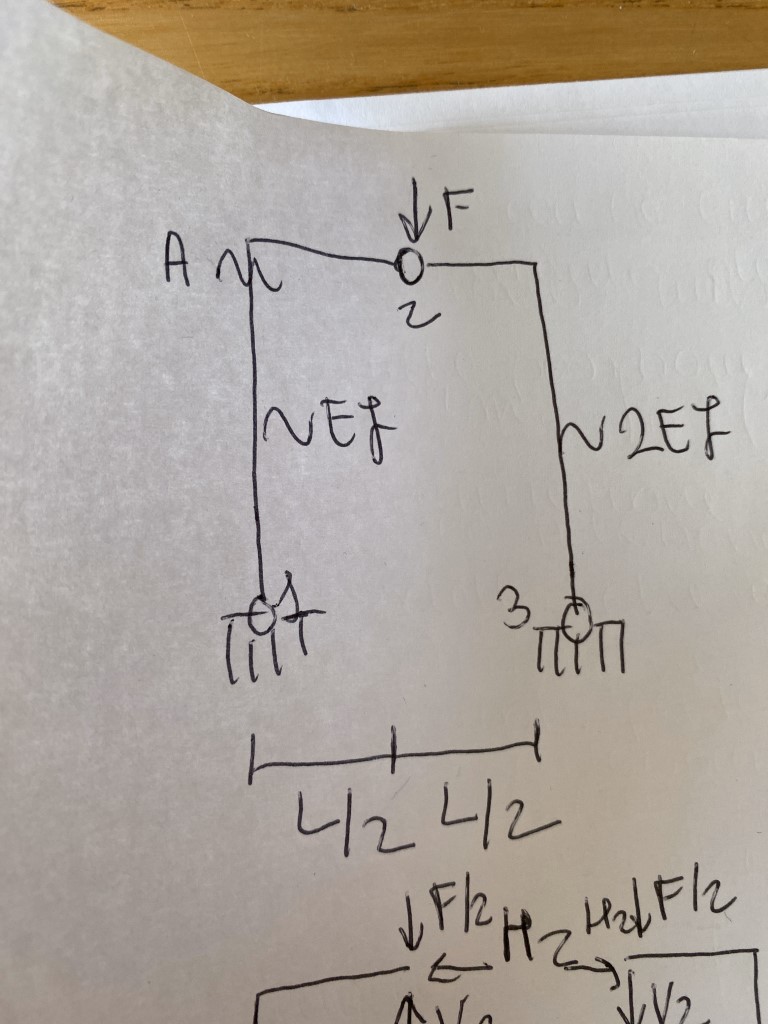 F
A
2
EJ 2EJ
1 3
L/2 L/2
F/2 H2 H2 F/2
V2 V2